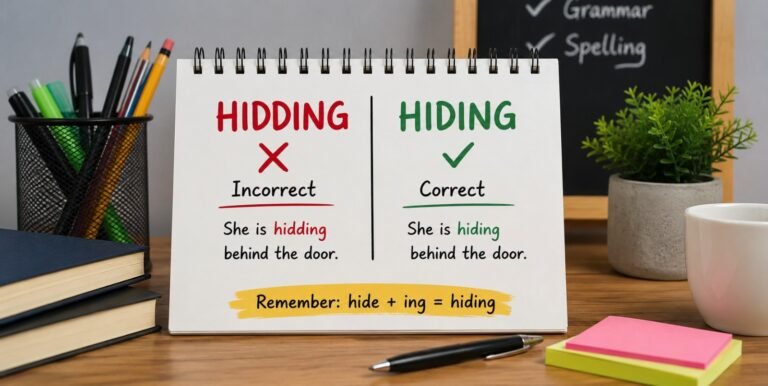 Grammar
Spelling
HIDDING
Incorrect
She is hidding
behind the door.
HIDING
Correct
She is hiding
behind the door.
Remember: hide + ing = hiding